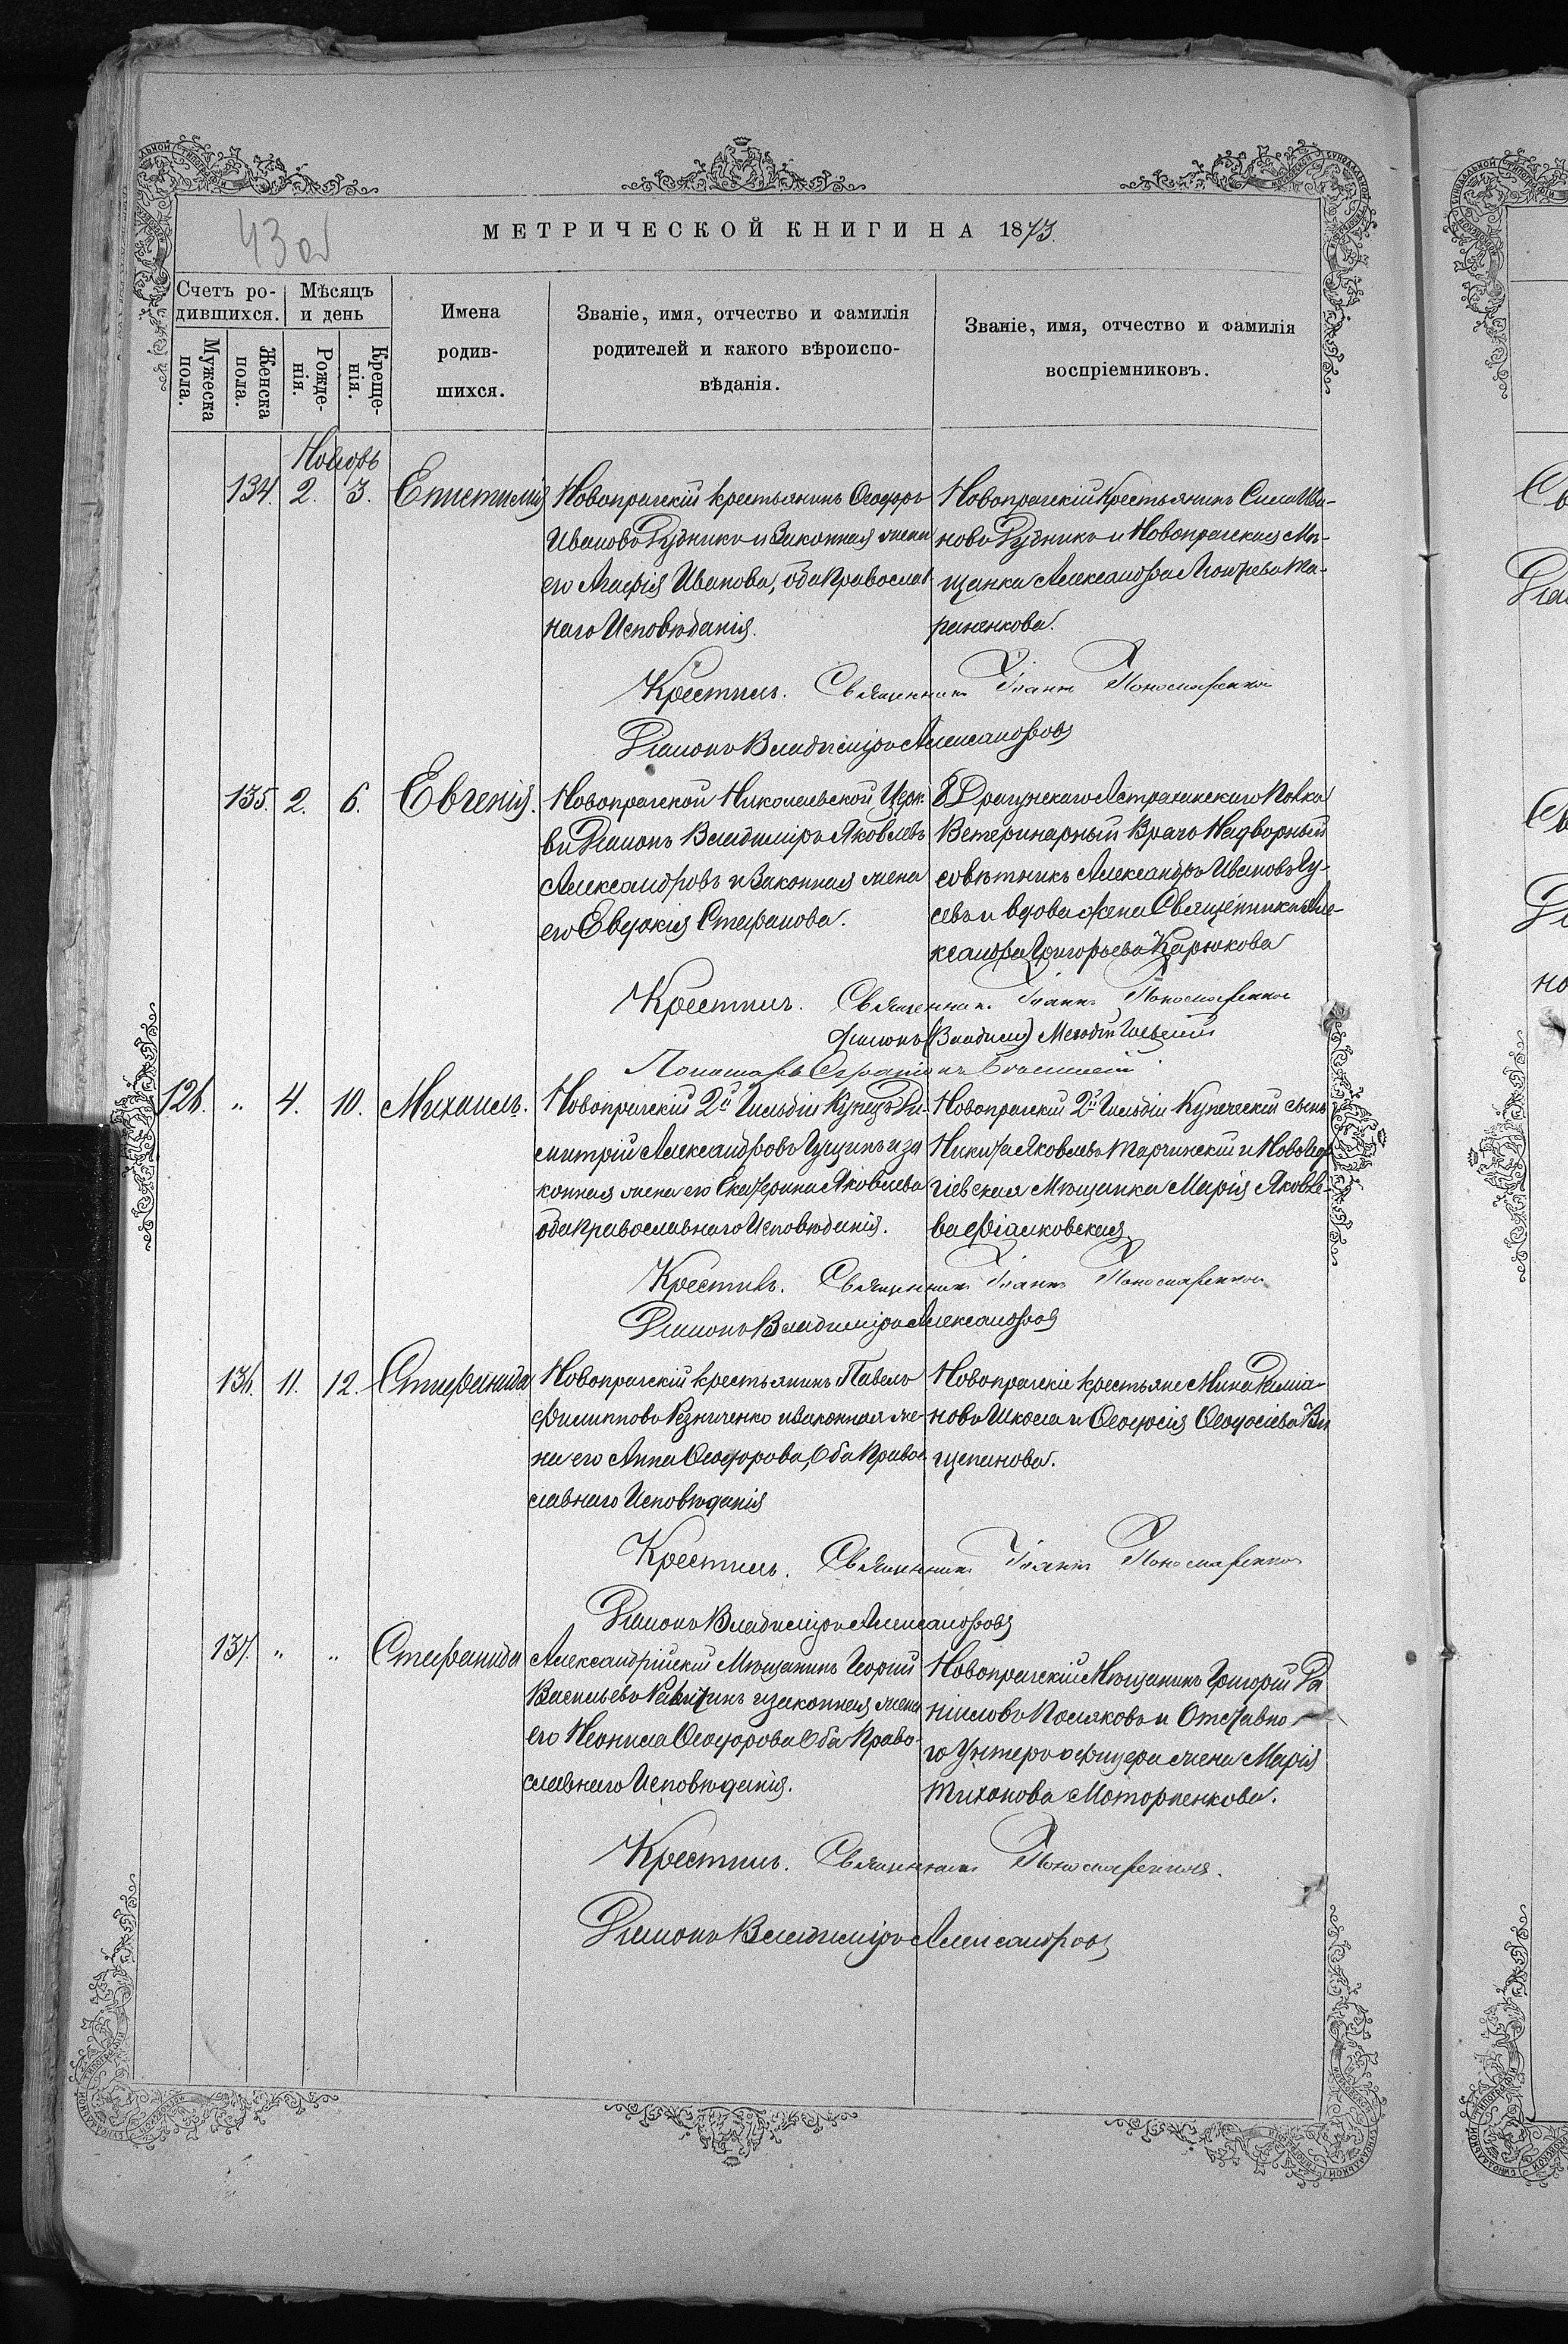 43 об
МЕТРИЧЕСКОЙ КНИГИ НА 1873.
Счетъ ро-
дившихся.
Мѣсяцъ
и день
Мужеска
пола.
Женска
пола.
Рожде-
нія.
Креще-
нія.
Имена
родив-
шихся.
Званіе, имя, отчество и фамилія
родителей и какого вѣроиспо-
вѣданія.
Званіе, имя, отчество и фамилія
воспріемниковъ.
Ноябрь
134. 2. 3. Епистимія
Новопражскій крестьянинъ Ѳеодоръ
Ивановъ Рудникъ и законная жена
его Агафія Иванова, оба православ
наго Исповѣданія.
Новопражскій Крестьянинъ Сила Ива-
новъ Рудникъ и Новопражская Мѣ-
щанка Александра Та-
раненкова.
Крестилъ. Священникъ Іоаннъ Пономаренко
Діаконъ Владиміръ Александровъ
135. 2. 6. Евгенія.
Новопражской Николаевской Церк
ви Діаконъ Владиміръ Яковлевъ
Александровъ и законная жена
его Евдокія Стефанова.
8 Драгунскаго Астраханскаго Полка
Ветеринарный Врачъ Надворный
совѣтникъ Александръ Ивановъ Гу-
севъ и вдова жена Священника Але-
ксандра Григорьева Карюкова
Крестилъ. Священник. Іоаннъ Пономаренко
Діаконъ (Владим) Мефодій
Пономарь
126. " 4. 10. Михаилъ.
Новопражскій 2й Гильдіи Купецъ Ди-
митрій Александровъ Гущинъ и за
конная жена его Екатерина Яковлева
оба православнаго Исповѣданія.
Новопражскій 2й Гильдіи Купеческій сынъ
Никита Яковлевъ Тарчинскій и Новогеор
гіевская Мѣщанка Марія Яковле-
ва Фіалковская.
Крестилъ. Священникъ Іоаннъ Пономаренко
Діаконъ Владиміръ Александровъ
136. 11. 12. Стефанида
Новопражскій крестьянинъ Павелъ
Филипповъ Резниченко и законная же-
на его Анна Ѳеодорова, Оба Право
славнаго Исповѣданія
Новопражскіе крестьяне Мина Даміа-
новъ Школа и Ѳеодосія Ѳеодосіева
щепанова.
Крестилъ. Священникъ Іоаннъ Пономаренко
Діаконъ Владиміръ Александровъ
137. " " Стефанида
Александрійскій Мѣщанинъ Георгій
Васильевъ и законная жена
его Неонила Ѳеодорова Оба Право-
славнаго Исповѣданія.
Новопражскій Мѣщанинъ Григорій Да
ніиловъ Поляковъ и Отставно
го Унтеръ офицера жена Марія
Тихонова Моторненкова.
Крестилъ. Священникъ Пономаренко.
Діаконъ Владиміръ Александровъ